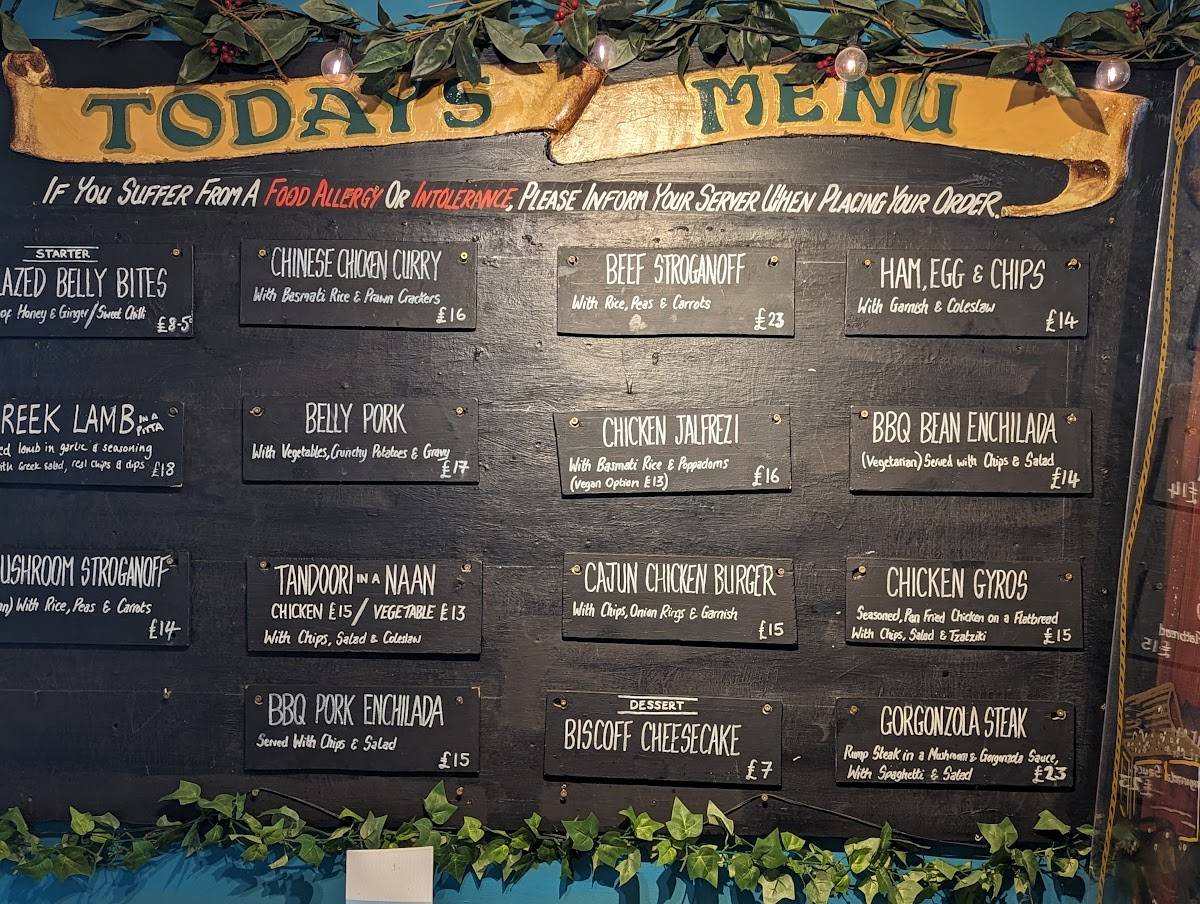 TODAY'S MENU
IF YOU SUFFER FROM A FOOD ALLERGY OR INTOLERANCE, PLEASE INFORM YOUR SERVER WHEN PLACING YOUR ORDER.
STARTER
AZED BELLY BITES
of Honey & Ginger/Sweet Chilli
£8-5
CHINESE CHICKEN CURRY
With Basmati Rice & Prawn Crackers
£16
BEEF STROGANOFF
With Rice, Peas & Carrots
£23
HAM, EGG & CHIPS
With Garnish & Coleslaw
£14
REEK LAMB IN A PITTA
ed lamb in garlic & seasoning
ith Greek salad, real chips & dips £18
BELLY PORK
With Vegetables, Crunchy Potatoes & Gravy
£17
CHICKEN JALFREZI
With Basmati Rice & Poppadoms
(Vegan Option £13) £16
BBQ BEAN ENCHILADA
(Vegetarian) Served with Chips & Salad
£14
USHROOM STROGANOFF
n) With Rice, Peas & Carrots
£14
TANDOORI IN A NAAN
CHICKEN £15/ VEGETABLE £13
With Chips, Salad & Coleslaw
CAJUN CHICKEN BURGER
With Chips, Onion Rings & Garnish
£15
CHICKEN GYROS
Seasoned, Pan Fried Chicken on a Flatbread
With Chips, Salad & Tzatziki £15
BBQ PORK ENCHILADA
Served With Chips & Salad
£15
DESSERT
BISCOFF CHEESECAKE
£7
GORGONZOLA STEAK
Rump Steak in a Mushroom & Gorgonzola Sauce,
With Spaghetti & Salad £23